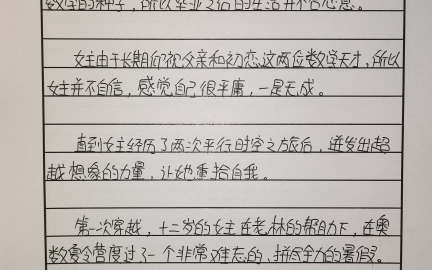 数学的种子，所以毕业之后的生活并不合心意。
女主由于长期仰视父亲和初恋这两位数学天才，所以
女主并不自信，感觉自己很平庸，一是无成。
直到女主经历了两次平行时空之旅后，迸发出超
越想象的力量，让她重拾自我。
第一次穿越，十二岁的女主在老林的帮助下，在奥
数夏令营度过了一个非常难忘的、拼尽全力的暑假。